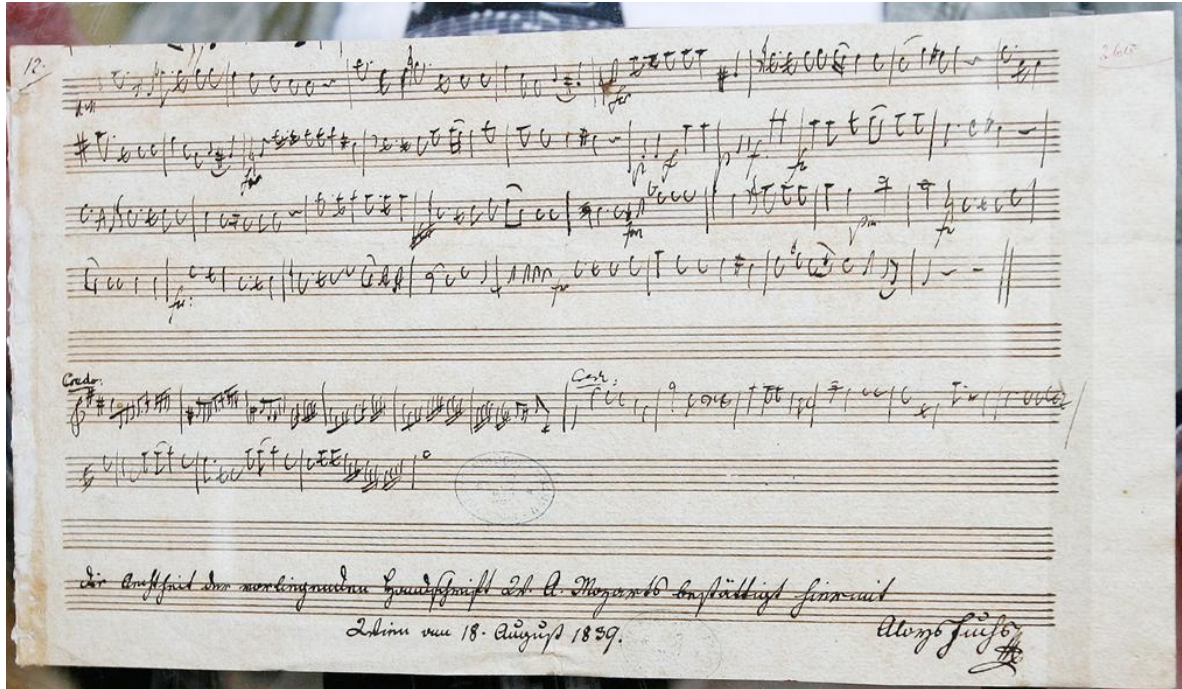 12.
Credo:
die Aechtheit der vorliegenden Handschrift W. A. Mozarts bestättigt hiermit
Wien am 18. August 1839.
Aloys Fuchs